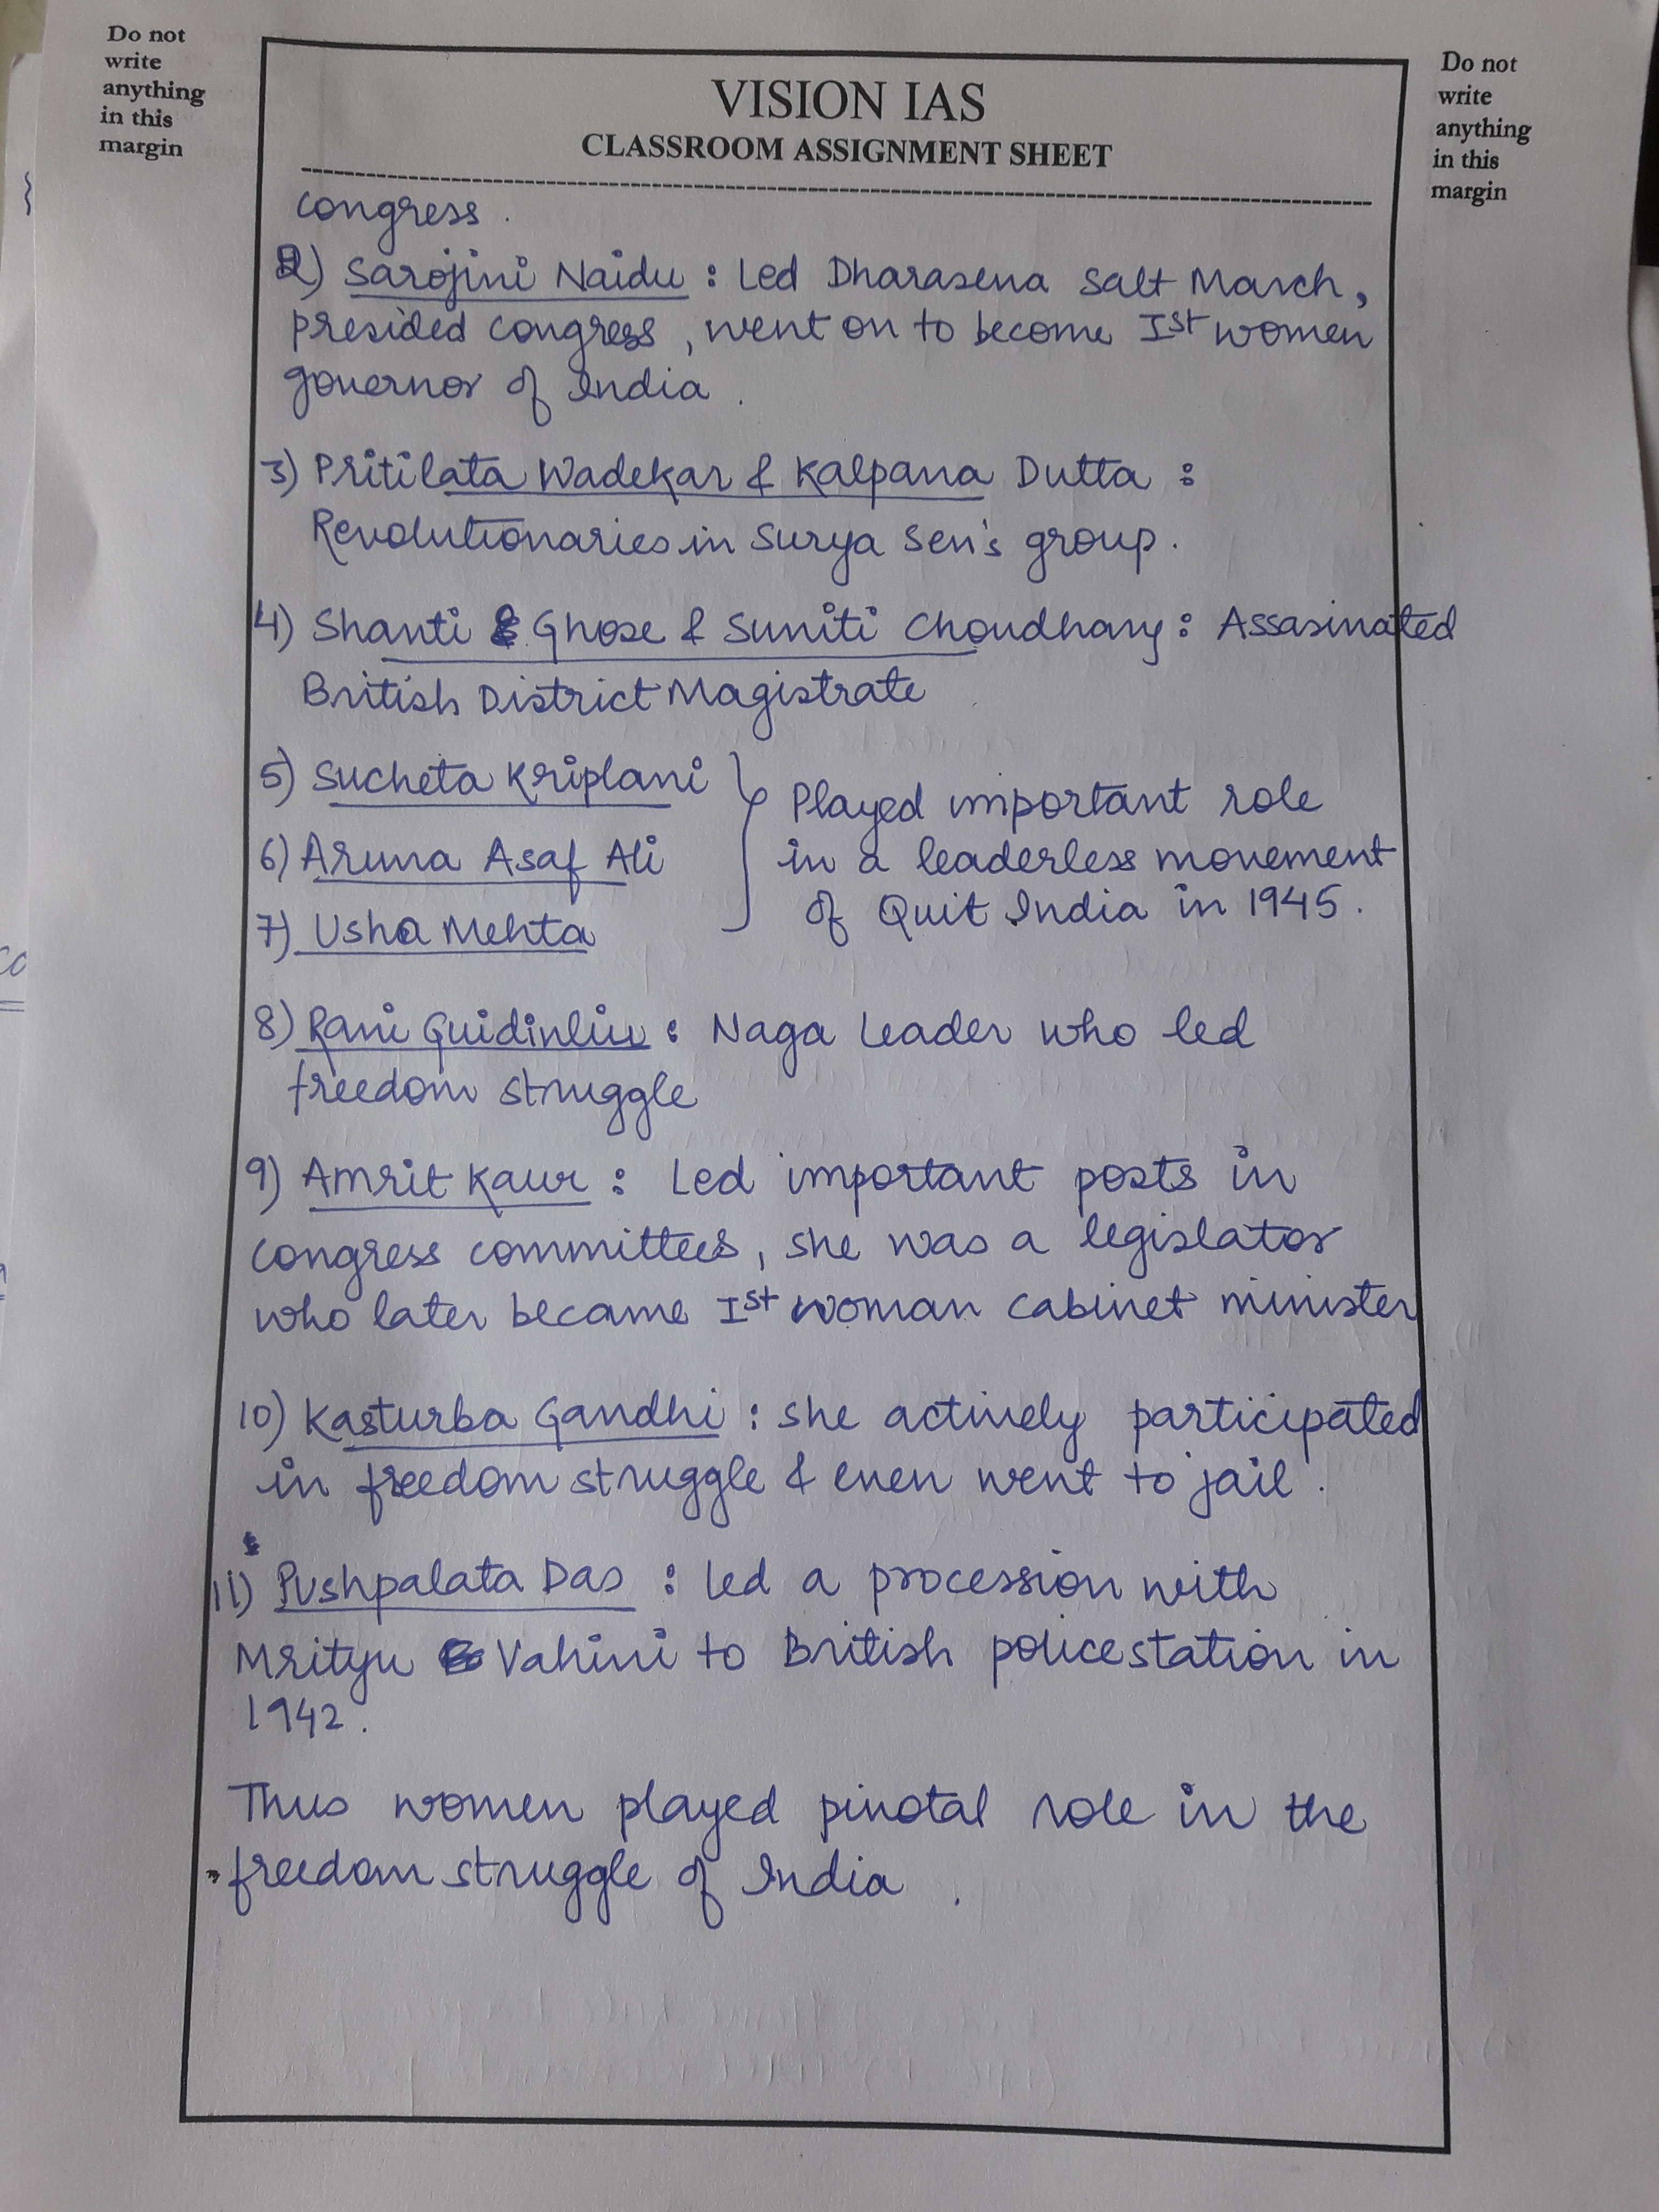 Do not
write
anything
in this
margin
Do not
write
anything
in this
margin
VISION IAS
CLASSROOM ASSIGNMENT SHEET
congress.
2) Sarojini Naidu : Led Dharasena Salt March,
presided congress, went on to become Ist women
governor of India.
3) Pritilata Wadekar & Kalpana Dutta :
Revolutionaries in Surya Sen's group.
4) Shanti Ghose & Suniti Choudhary : Assasinated
British District Magistrate
5) Sucheta Kriplani
6) Aruna Asaf Ali
7) Usha Mehta
Played important role
in a leaderless movement
of Quit India in 1945.
8) Rani Guidinliu : Naga Leader who led
freedom struggle
9) Amrit Kaur : Led important posts in
congress committees, she was a legislator
who later became Ist woman cabinet minister
10) Kasturba Gandhi : she actively participated
in freedom struggle & even went to jail.
11) Pushpalata Das : led a procession with
Mrityu Vahini to British police station in
1942.
Thus women played pivotal role in the
freedom struggle of India.